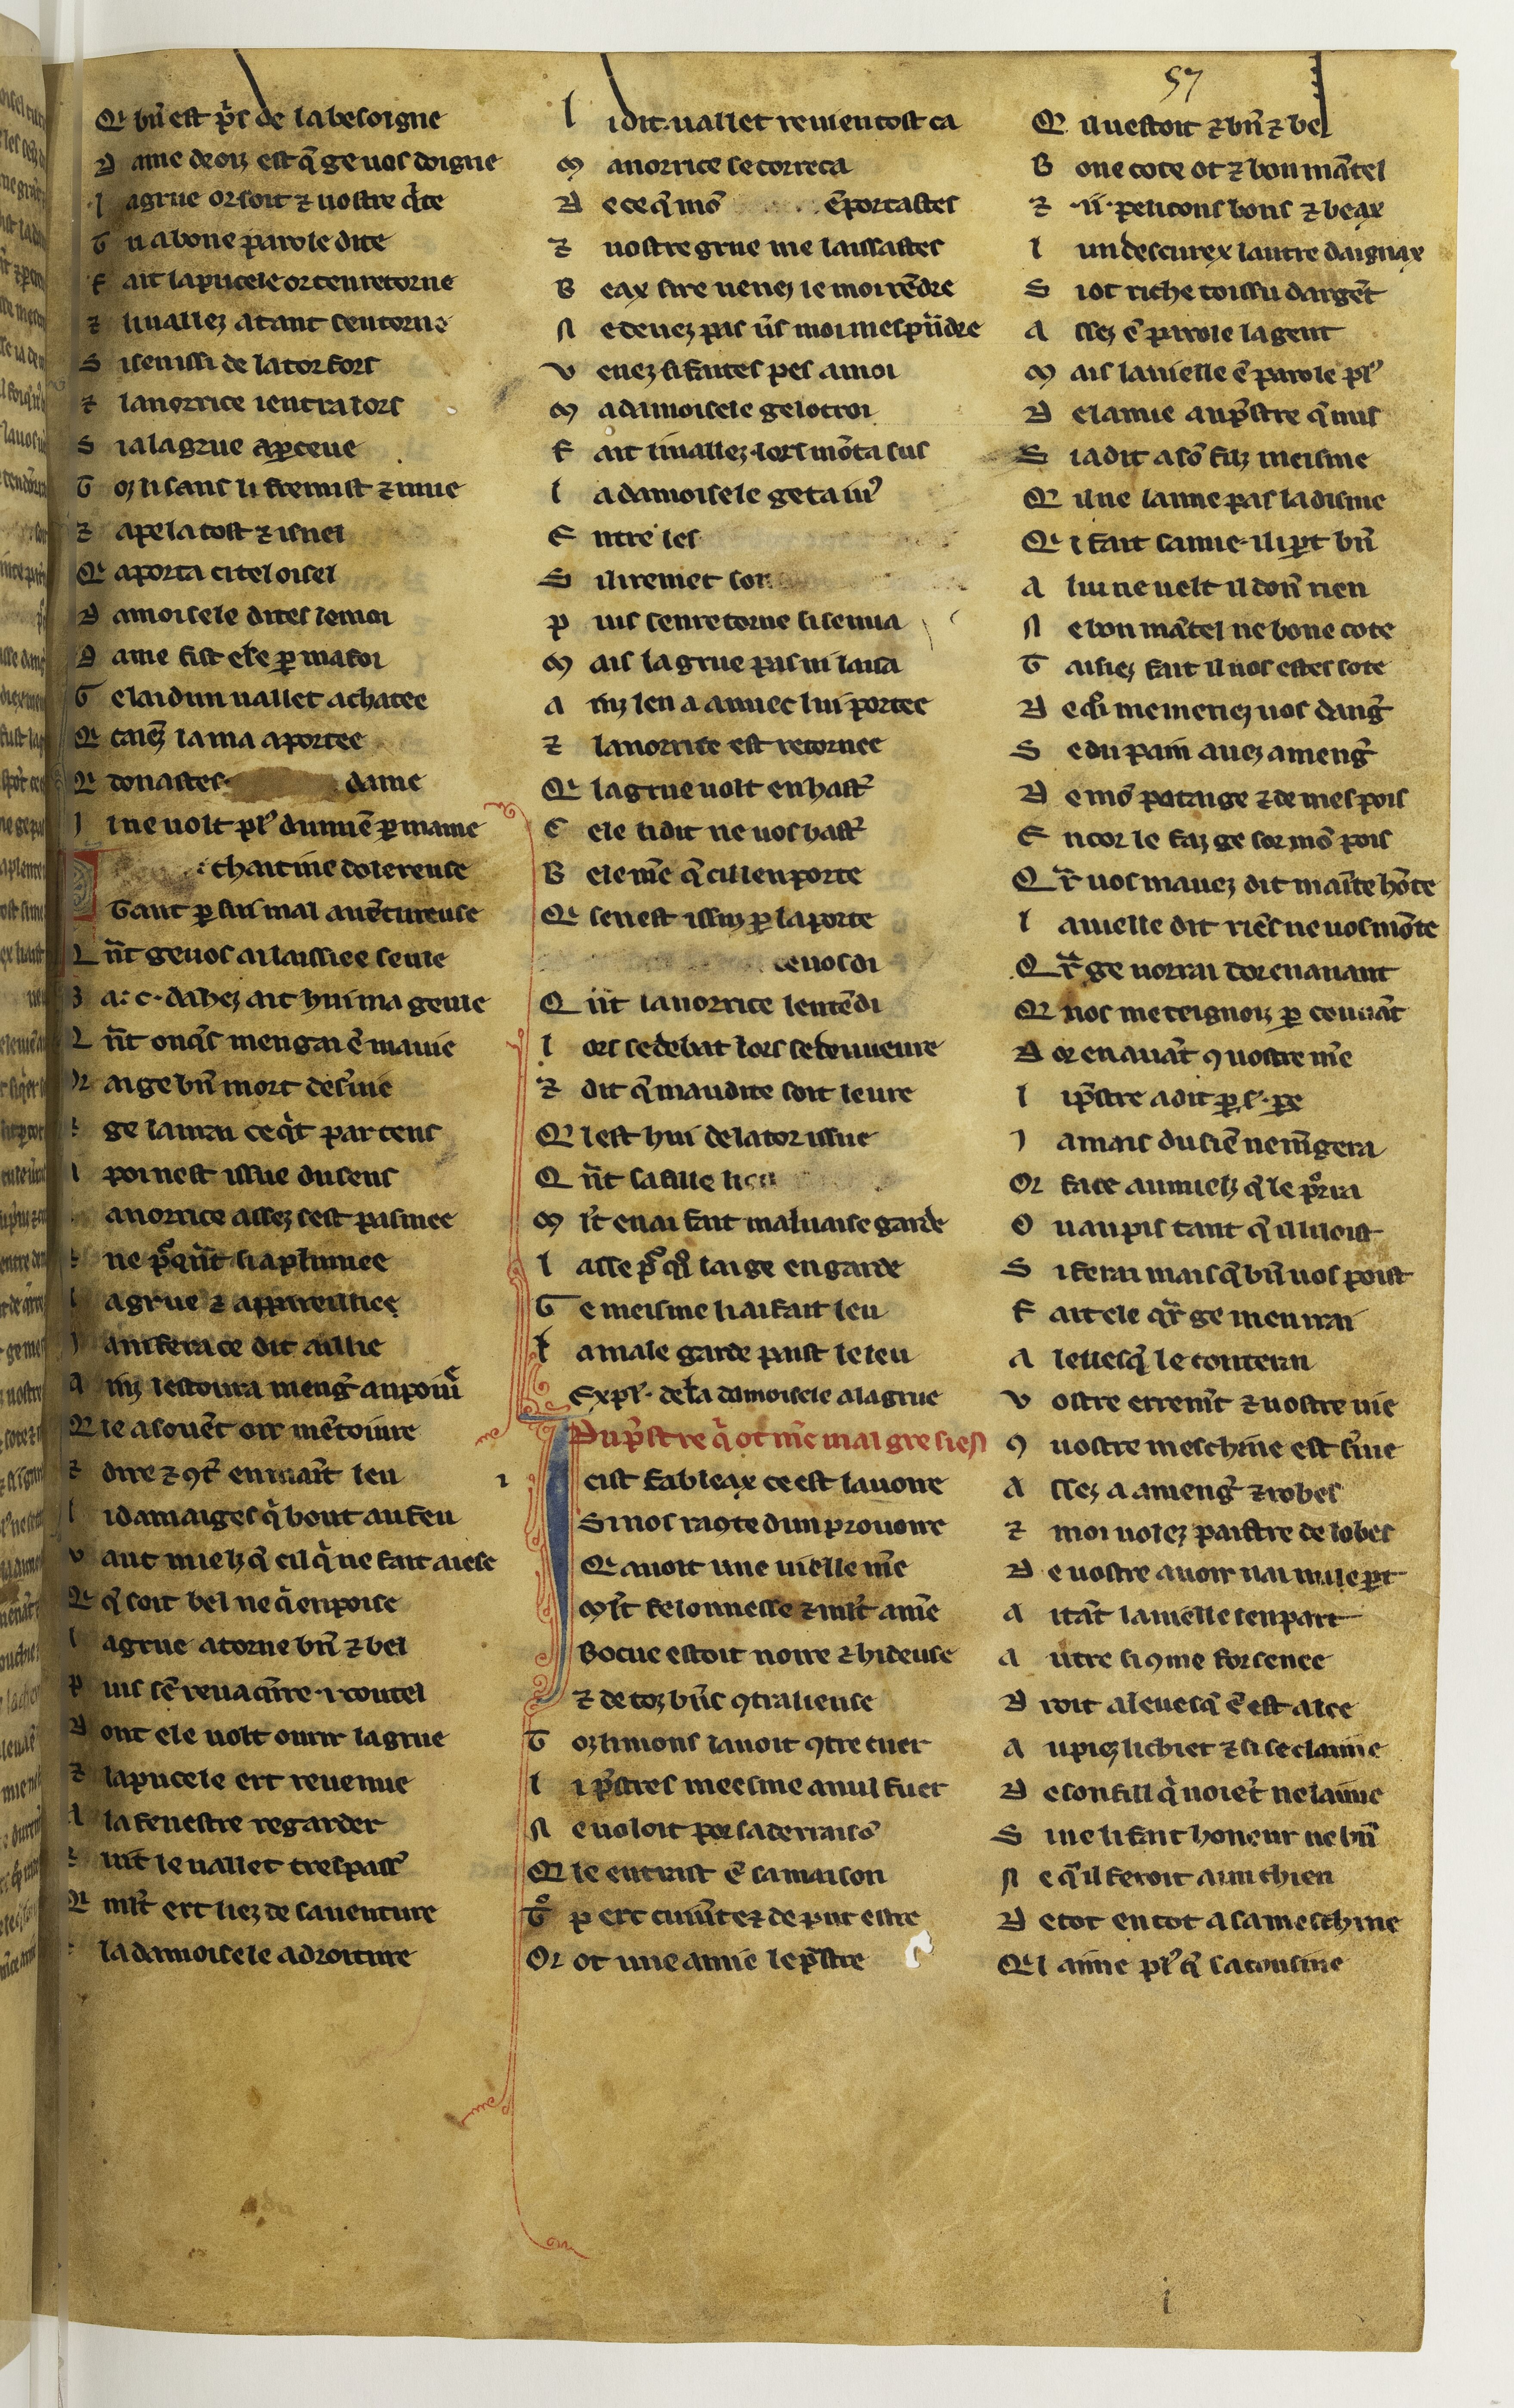 57
Q bn̄ est pͥs de la besoigne
D ame droiz est q̄ ge uos doigne
l agrue or soit ⁊ uostre qͥte
T u a bone parole dite
F ait la pucele or ten retorne
⁊ li uallez atant sen torne
S i sen issi de la tor fors
⁊ la norrice i entra lors
S i a la grue aꝑceue
T oz li sans li fremist ⁊ mue
⁊ apela tost ⁊ isnel
Q aporta ci tel oisel
D amoisele dites le moi
D ame fist ele ꝑ ma foi
G e lai dun uallet achatee
Q caienz la ma aportee
Q donastes dame
I l ne uolt plꝰ du mien ꝑ mame
chaitiue dolereuse
Tant ꝑ sui mal auētureuse
Q n̄t ge uos ai laissiee seule
B a .c. dahez ait hui ma geule
Q n̄t onqͥs mengai ē ma uie
Or ai ge bn̄ mort deseruie
⁊ ge laurai ce qͥt par tens
l poi nest issue du sens
anorrice assez sest pasmee
ne pͦqn̄t si a plumee
l agrue ⁊ appareilliee
J a ni fera ce dit aillie
A inz lestoura meng̾ au poiuͬ
Q ie a souēt oir mētoiure
⁊ dire ⁊ ꝯt̾ en maint leu
l i damaiges qͥ bout au feu
V aut mielz q̄ cil qͥ ne fait aiese
Q q̄ soit bel ne qͥ enpoise
l agrue atorne bn̄ ⁊ bel
P uis sē reua qͬre .i. coutel
D ont ele uolt ourir la grue
⁊ la pucele ert reuenue
A la fenestre regarder
uit le uallet trespass̾
Q mlt̾ ert liez de sauenture
⁊ la damoisele a droiture
l i dit uallet reuien tost ca
M a norrice se correca
D e ce q̄ mō ēportastes
⁊ uostre grue me laissastes
B eax sire uenez le moi rēdre
N e deuez pas u̾s moi mesprēdre
V enez si faites pes a moi
M a damoisele ge lotroi
F ait li uallez lors mōta sus
l a damoisele geta iuꝰ
E ntre les
S i li remet son
P uis sen retorne si sen ua
M ais la grue pas ni laia
A inz len a auuec lui portee
⁊ la norrice est retornee
Q la grue uolt en hast̾
C ele li dit ne uos hast̾
B ele mē q̄ cil len porte
Q sen est issuz ꝑ la porte
ce uos di
Q n̄t la norrice lentēdi
l ors se debat lors se deueure
⁊ dit q̄ maudite soit leure
Q l est hui de la tor issue
Q n̄t sa fille li
M lt̾ en ai fait maluaise garde
l asse pͦ qͦi lai ge en garde
G e meisme li ai fait leu
l a male garde paist le leu
Expl̾. de la damoisele a la grue
Du pͣstre qͥ ot m̄e mal gre sien
Icist fableax ce est la uoire
Si nos raꝯte dun prouoire
Q auoit une uielle m̄e
Mlt̾ felonnesse ⁊ mlt̾ am̄e
Bocue estoit noire ⁊ hideuse
⁊ de toz bn̄s ꝯtralieuse
T oz li mons lauoit ꝯtre cuer
l i pͣstres meesme a nul fuer
N e uoloit por sa desraisō
Q le entrast ē sa maison
Tͦp ert cuiūte ⁊ de put estre
Or ot une amie le pͣstre
Q il uestoit ⁊ bn̄ ⁊ bel
B one cote ot ⁊ bon mātel
⁊ .ii. pelicons bons ⁊ beax
l un descurex lautre daigniax
S i ot riche toissu dargēt
A ssez ē parole la gent
M ais la uielle ē parole plꝰ
D e lamie au pͣstre q̄ nus
S i a dit a sō filz meisme
Q il ne laime pas la disme
Q i fait samie il i pt̄ bn̄
A lui ne uelt il don̄ rien
N e bon mātel ne bone cote
T aisiez fait il uos estes sote
D e qͦi me menez uos dang̾
S e du pain auez a meng̾
D e mō potage ⁊ de mes pois
E ncor le faz ge sor mō pois
Q r̄ uos mauez dit mainte hōte
l a uielle dit riēs ne uos mōte
Q r̄ ge uorrai dorenauant
Q uos me teignoiz ꝑ couuāt
D orenauāt ꝯ uostre m̄e
l i pͣstre a dit ꝑ s̾. pe
J amais du siē ne mēgera
Or face au mielz q̄ le porra
O u au pis tant q̄ il li loist
S i ferai mais q̄ bn̄ uos poist
F ait ele qr̄ ge men irai
A leuesq̄ le conterai
V ostre errem̄t ⁊ uostre uie
ꝯ uostre meschine est s̾uie
A ssez a a meng̾ ⁊ robes
⁊ moi uolez paistre de lobes
D e uostre auoir nai mie pt̄
A itāt la uielle sen part
A utre si ꝯme forsenee
D roit a leuesq̄ ē est alee
A u piez li chiet ⁊ si se claime
D e son fill qͥ noiēt ne laime
S i ne li fait honeur ne bn̄
N e q̄ il feroit a un chien
D e tot en tot a sa meschine
Q l aime plꝰ q̄ sa cousine
i